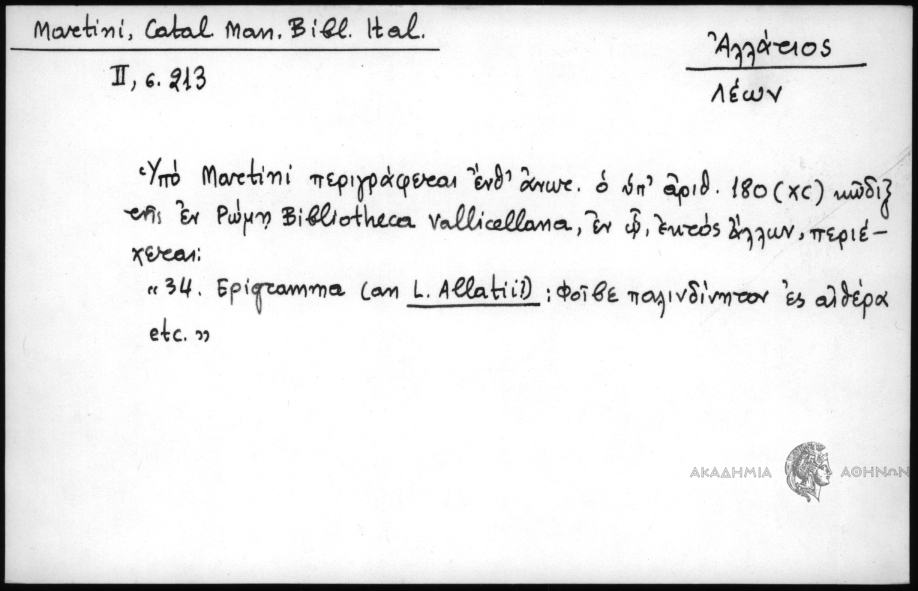 Martini, Catal. Man. Bibl. Ital.
II, σ. 213
Ἀλλάτιος
Λέων
Ὑπὸ Martini περιγράφεται ἔνθ' ἀνωτ. ὁ ὑπ' ἀριθ. 180 (XC) κῶδιξ
τῆς ἐν Ρώμῃ Bibliotheca Vallicellana, ἐν ᾧ, ἐκτὸς ἄλλων, περιέ-
χεται:
«34. Epigramma (an L. Allatii) : Φοῖβε παλινδίνητον ἐς αἰθέρα
etc.»
ΑΚΑΔΗΜΙΑ ΑΘΗΝΩΝ